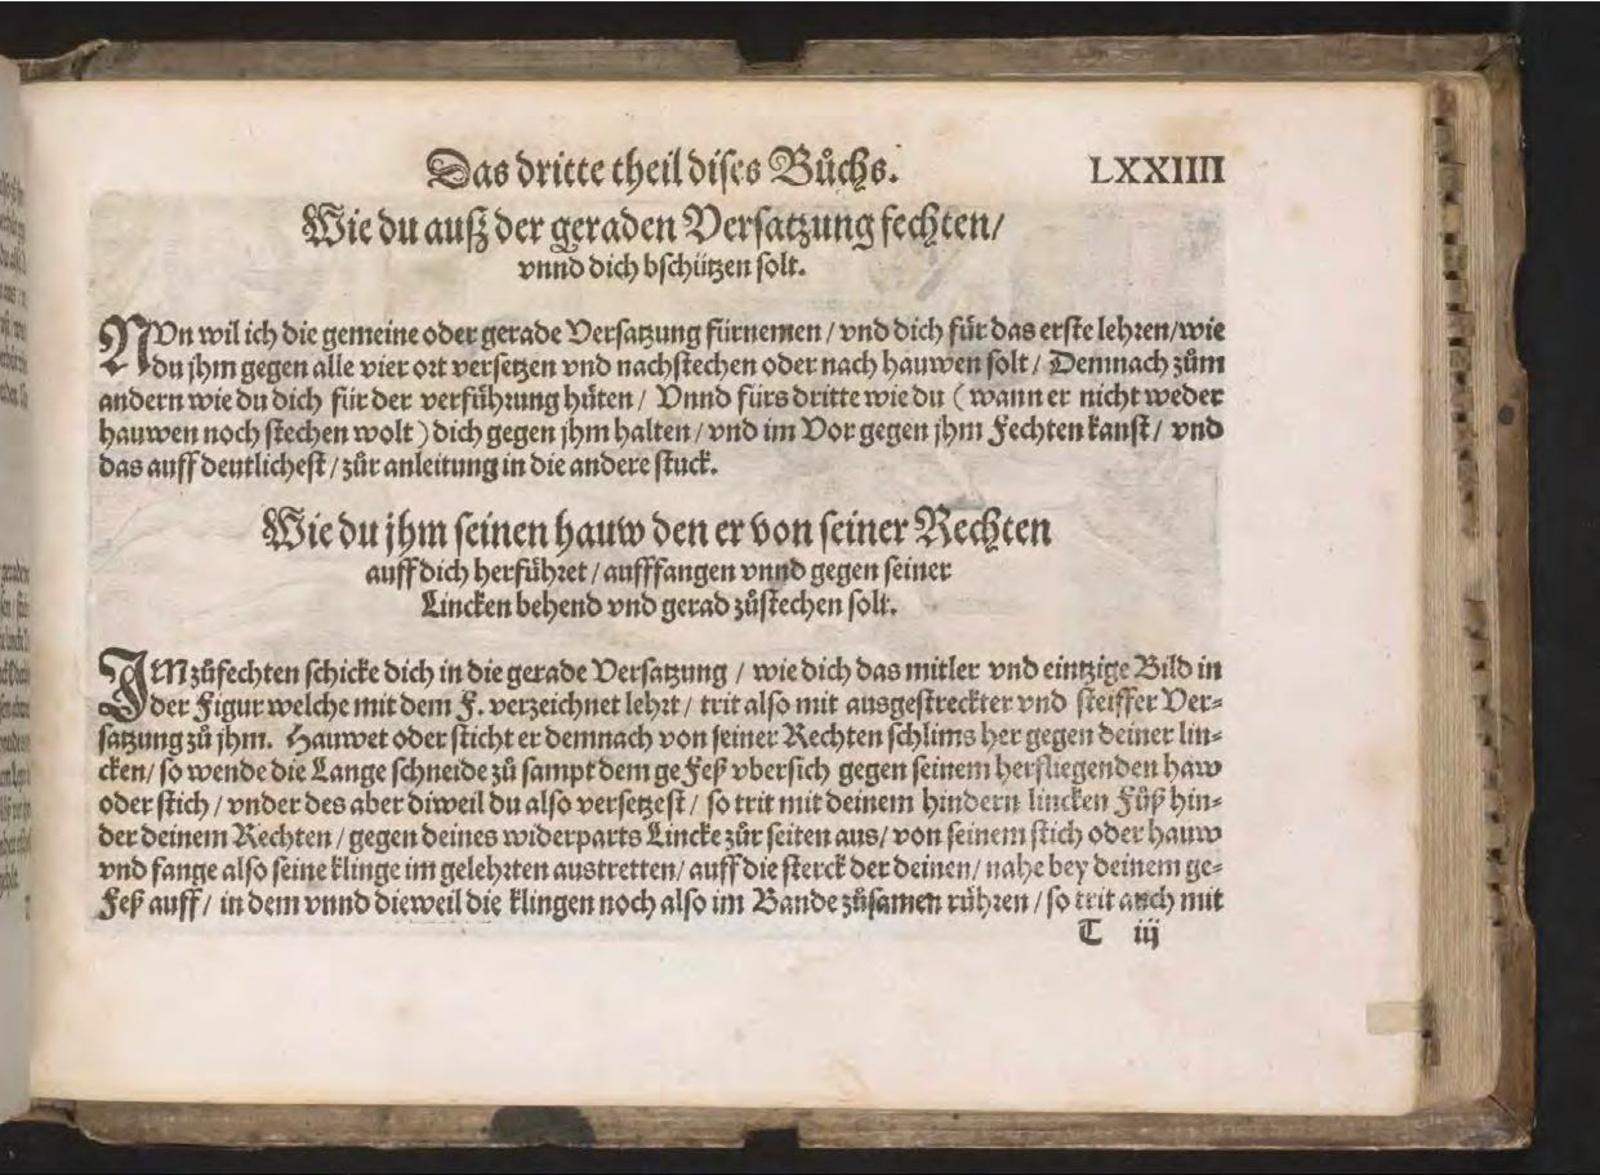 Das dritte theil dises Bůchs. LXXIIII
Wie du auß der geraden Versatzung fechten/
vnnd dich bschützen solt.
NVn wil ich die gemeine oder gerade Versatzung fürnemen / vnd dich für das erste lehren/wie
du jhm gegen alle vier ort versetzen vnd nachstechen oder nach hauwen solt / Demnach zům
andern wie du dich für der verführung hüten / Vnnd fürs dritte wie du ( wann er nicht weder
hauwen noch stechen wolt ) dich gegen jhm halten / vnd im Vor gegen jhm Fechten kanst / vnd
das auff deutlichest / zůr anleitung in die andere stuck.
Wie du jhm seinen hauw den er von seiner Rechten
auff dich herführet / aufffangen vnnd gegen seiner
Lincken behend vnd gerad zůstechen solt.
IM zůfechten schicke dich in die gerade Versatzung / wie dich das mitler vnd eintzige Bild in
der Figur welche mit dem F. verzeichnet lehrt / trit also mit ausgestreckter vnd steiffer Ver-
satzung zů jhm. Hauwet oder sticht er demnach von seiner Rechten schlims her gegen deiner lin-
cken/ so wende die Lange schneide zů sampt dem geFeß vbersich gegen seinem herfliegenden haw
oder stich / vnder des aber diweil du also versetzest / so trit mit deinem hindern lincken Fůß hin-
der deinem Rechten / gegen deines widerparts Lincke zůr seiten aus/ von seinem stich oder hauw
vnd fange also seine klinge im gelehrten austretten/ auff die sterck der deinen/ nahe bey deinem ge-
Feß auff / in dem vnnd dieweil die klingen noch also im Bande zůsamen rühren / so trit auch mit
T iij